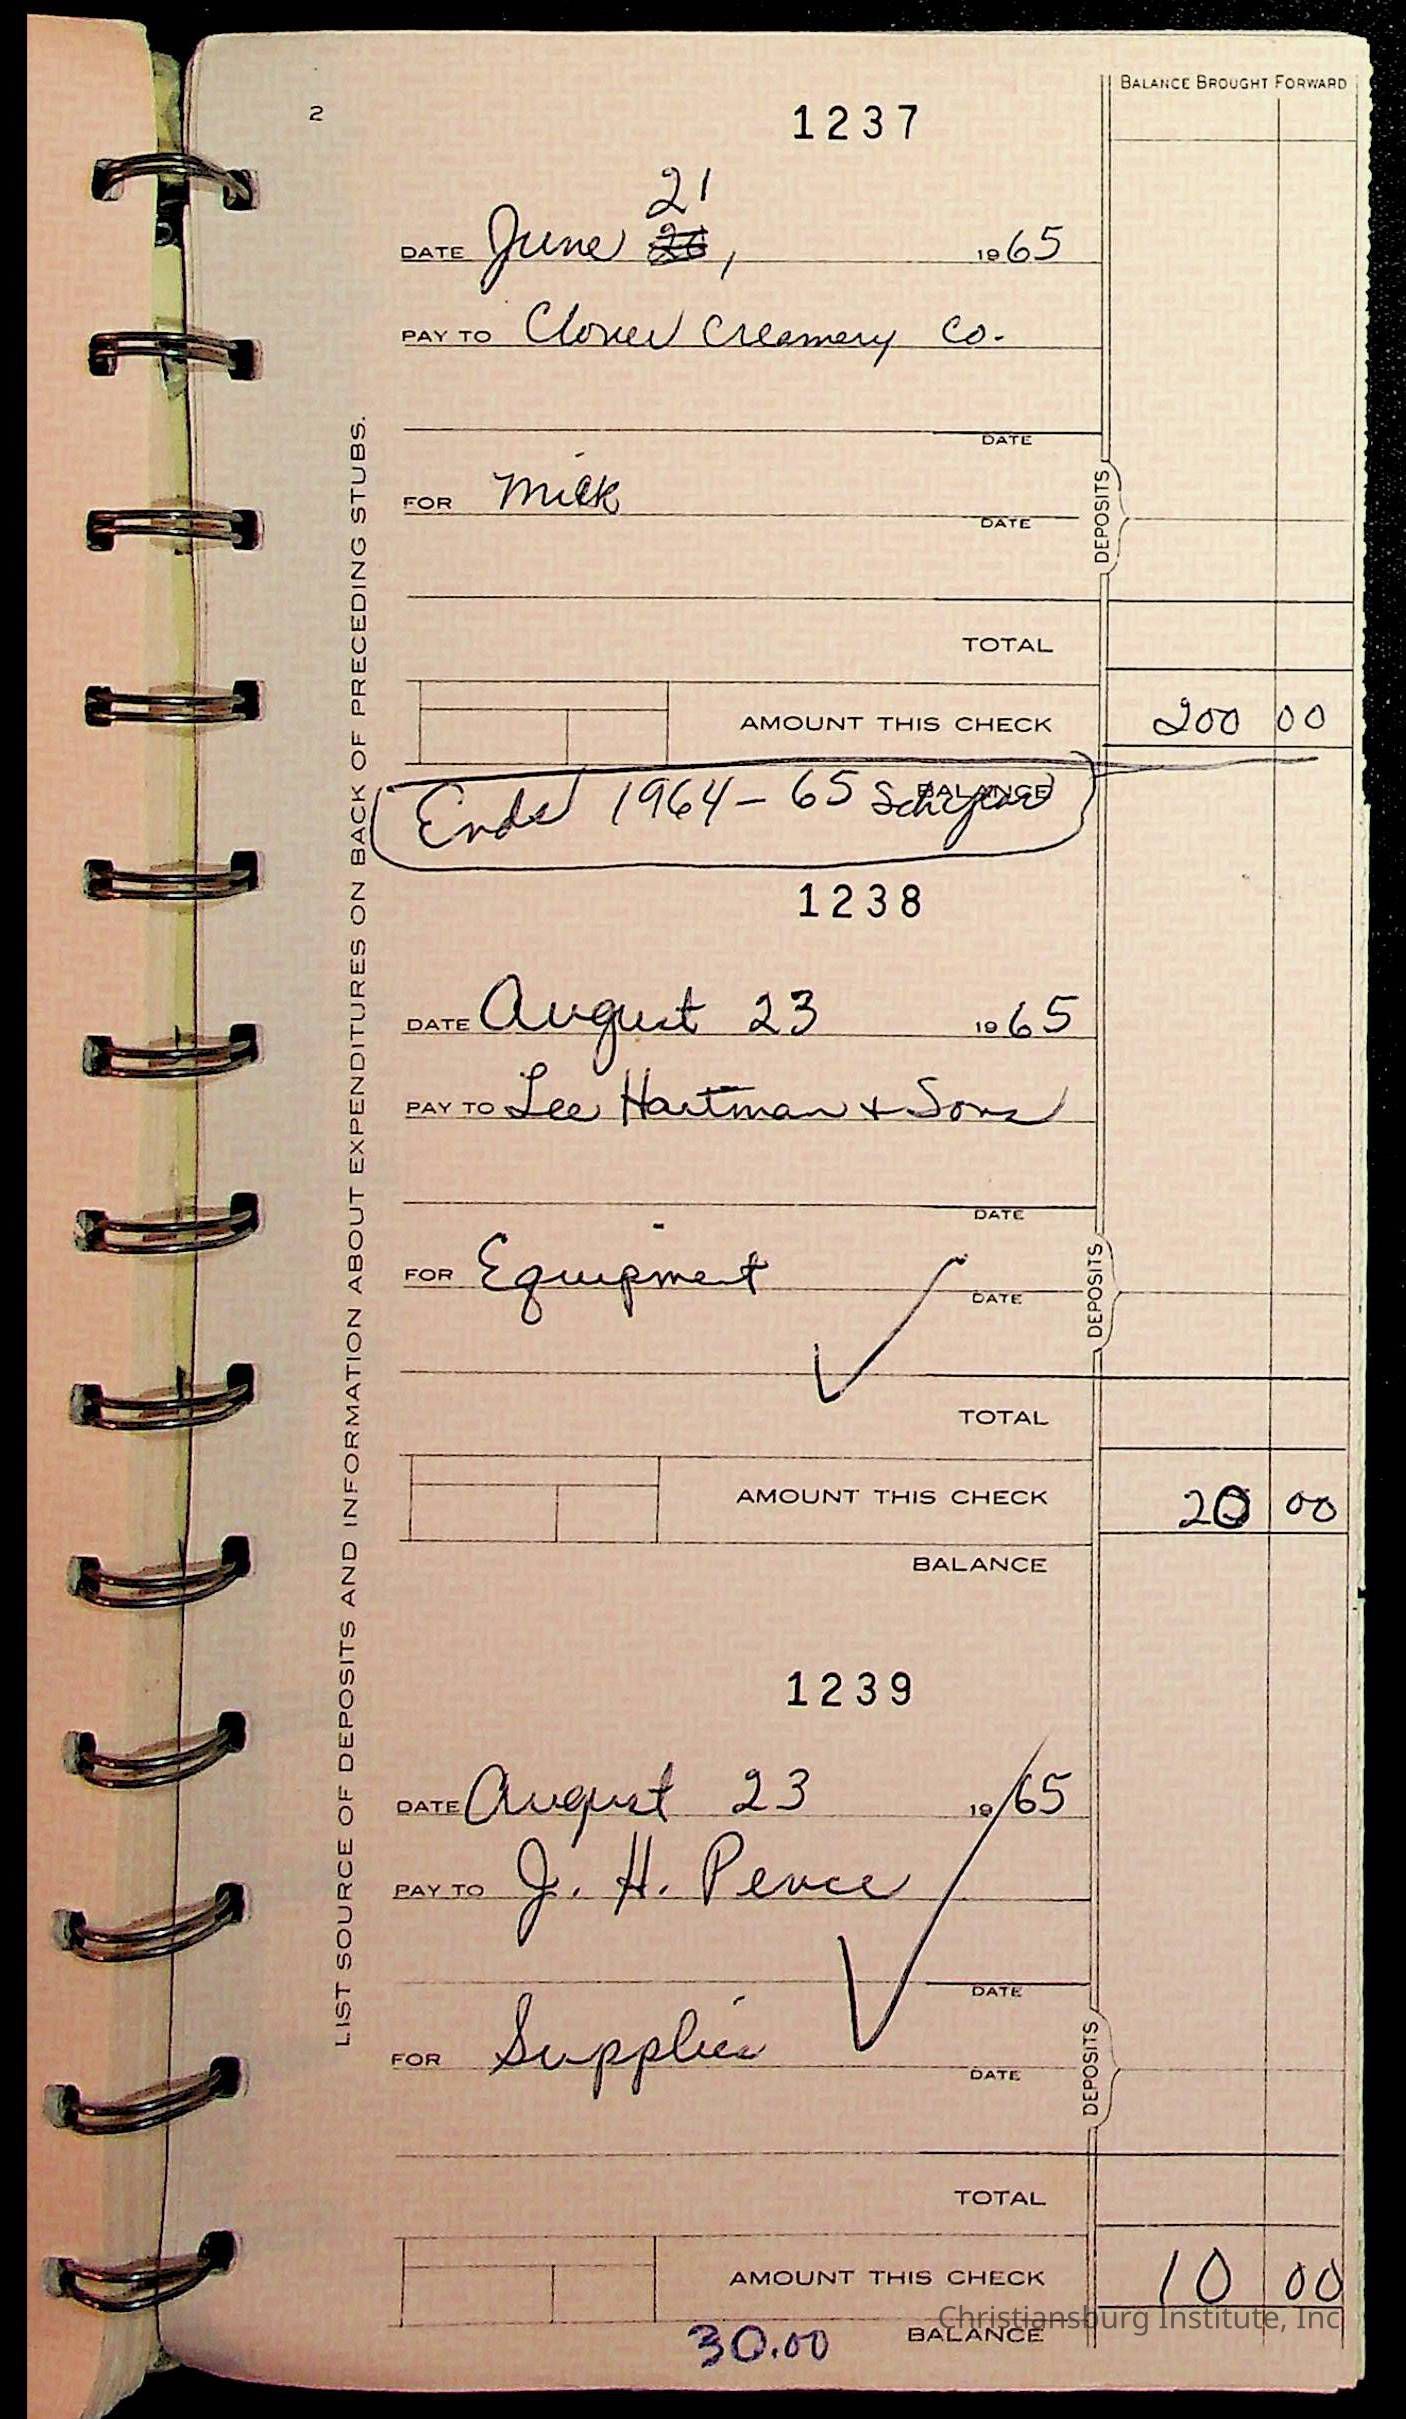 BALANCE BROUGHT FORWARD
2
1237
21
DATE June 26, 1965
PAY TO Clover Creamery Co.
DATE
FOR Milk
DATE
DEPOSITS
TOTAL
AMOUNT THIS CHECK 200 00
BALANCE
Ends 1964-65 Sch year
1238
DATE August 23 1965
PAY TO Lee Hartman & Sons
DATE
FOR Equipment
DATE
DEPOSITS
TOTAL
AMOUNT THIS CHECK 20 00
BALANCE
1239
DATE August 23 1965
PAY TO J. H. Pence
DATE
FOR Supplies
DATE
DEPOSITS
TOTAL
AMOUNT THIS CHECK 10 00
BALANCE
30.00
LIST SOURCE OF DEPOSITS AND INFORMATION ABOUT EXPENDITURES ON BACK OF PRECEDING STUBS.
Christiansburg Institute, Inc